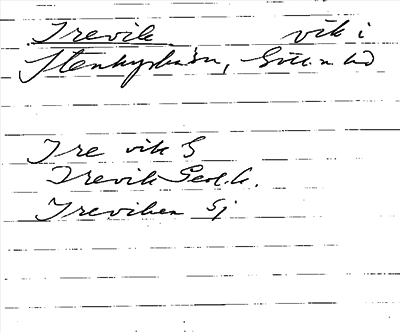 Trevik vik i
Stenkyrka sn, Gotl. n hd
Tre vik S
Trevik Geol. k.
Treviken Sj